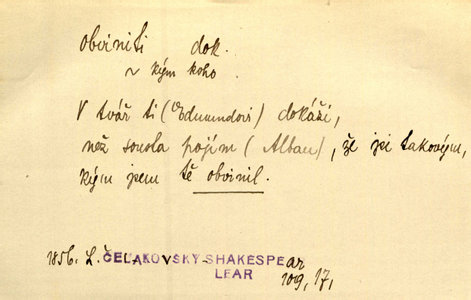 obviniti dok.
~ kým koho
V tvář ti (Edmundovi) dokáži,
než sousta pojím (Alban), že jsi takovým,
kým jsem tě obvinil.
1856. L. ČELAKOVSKÝ-SHAKESPEar
LEAR 109, 17,